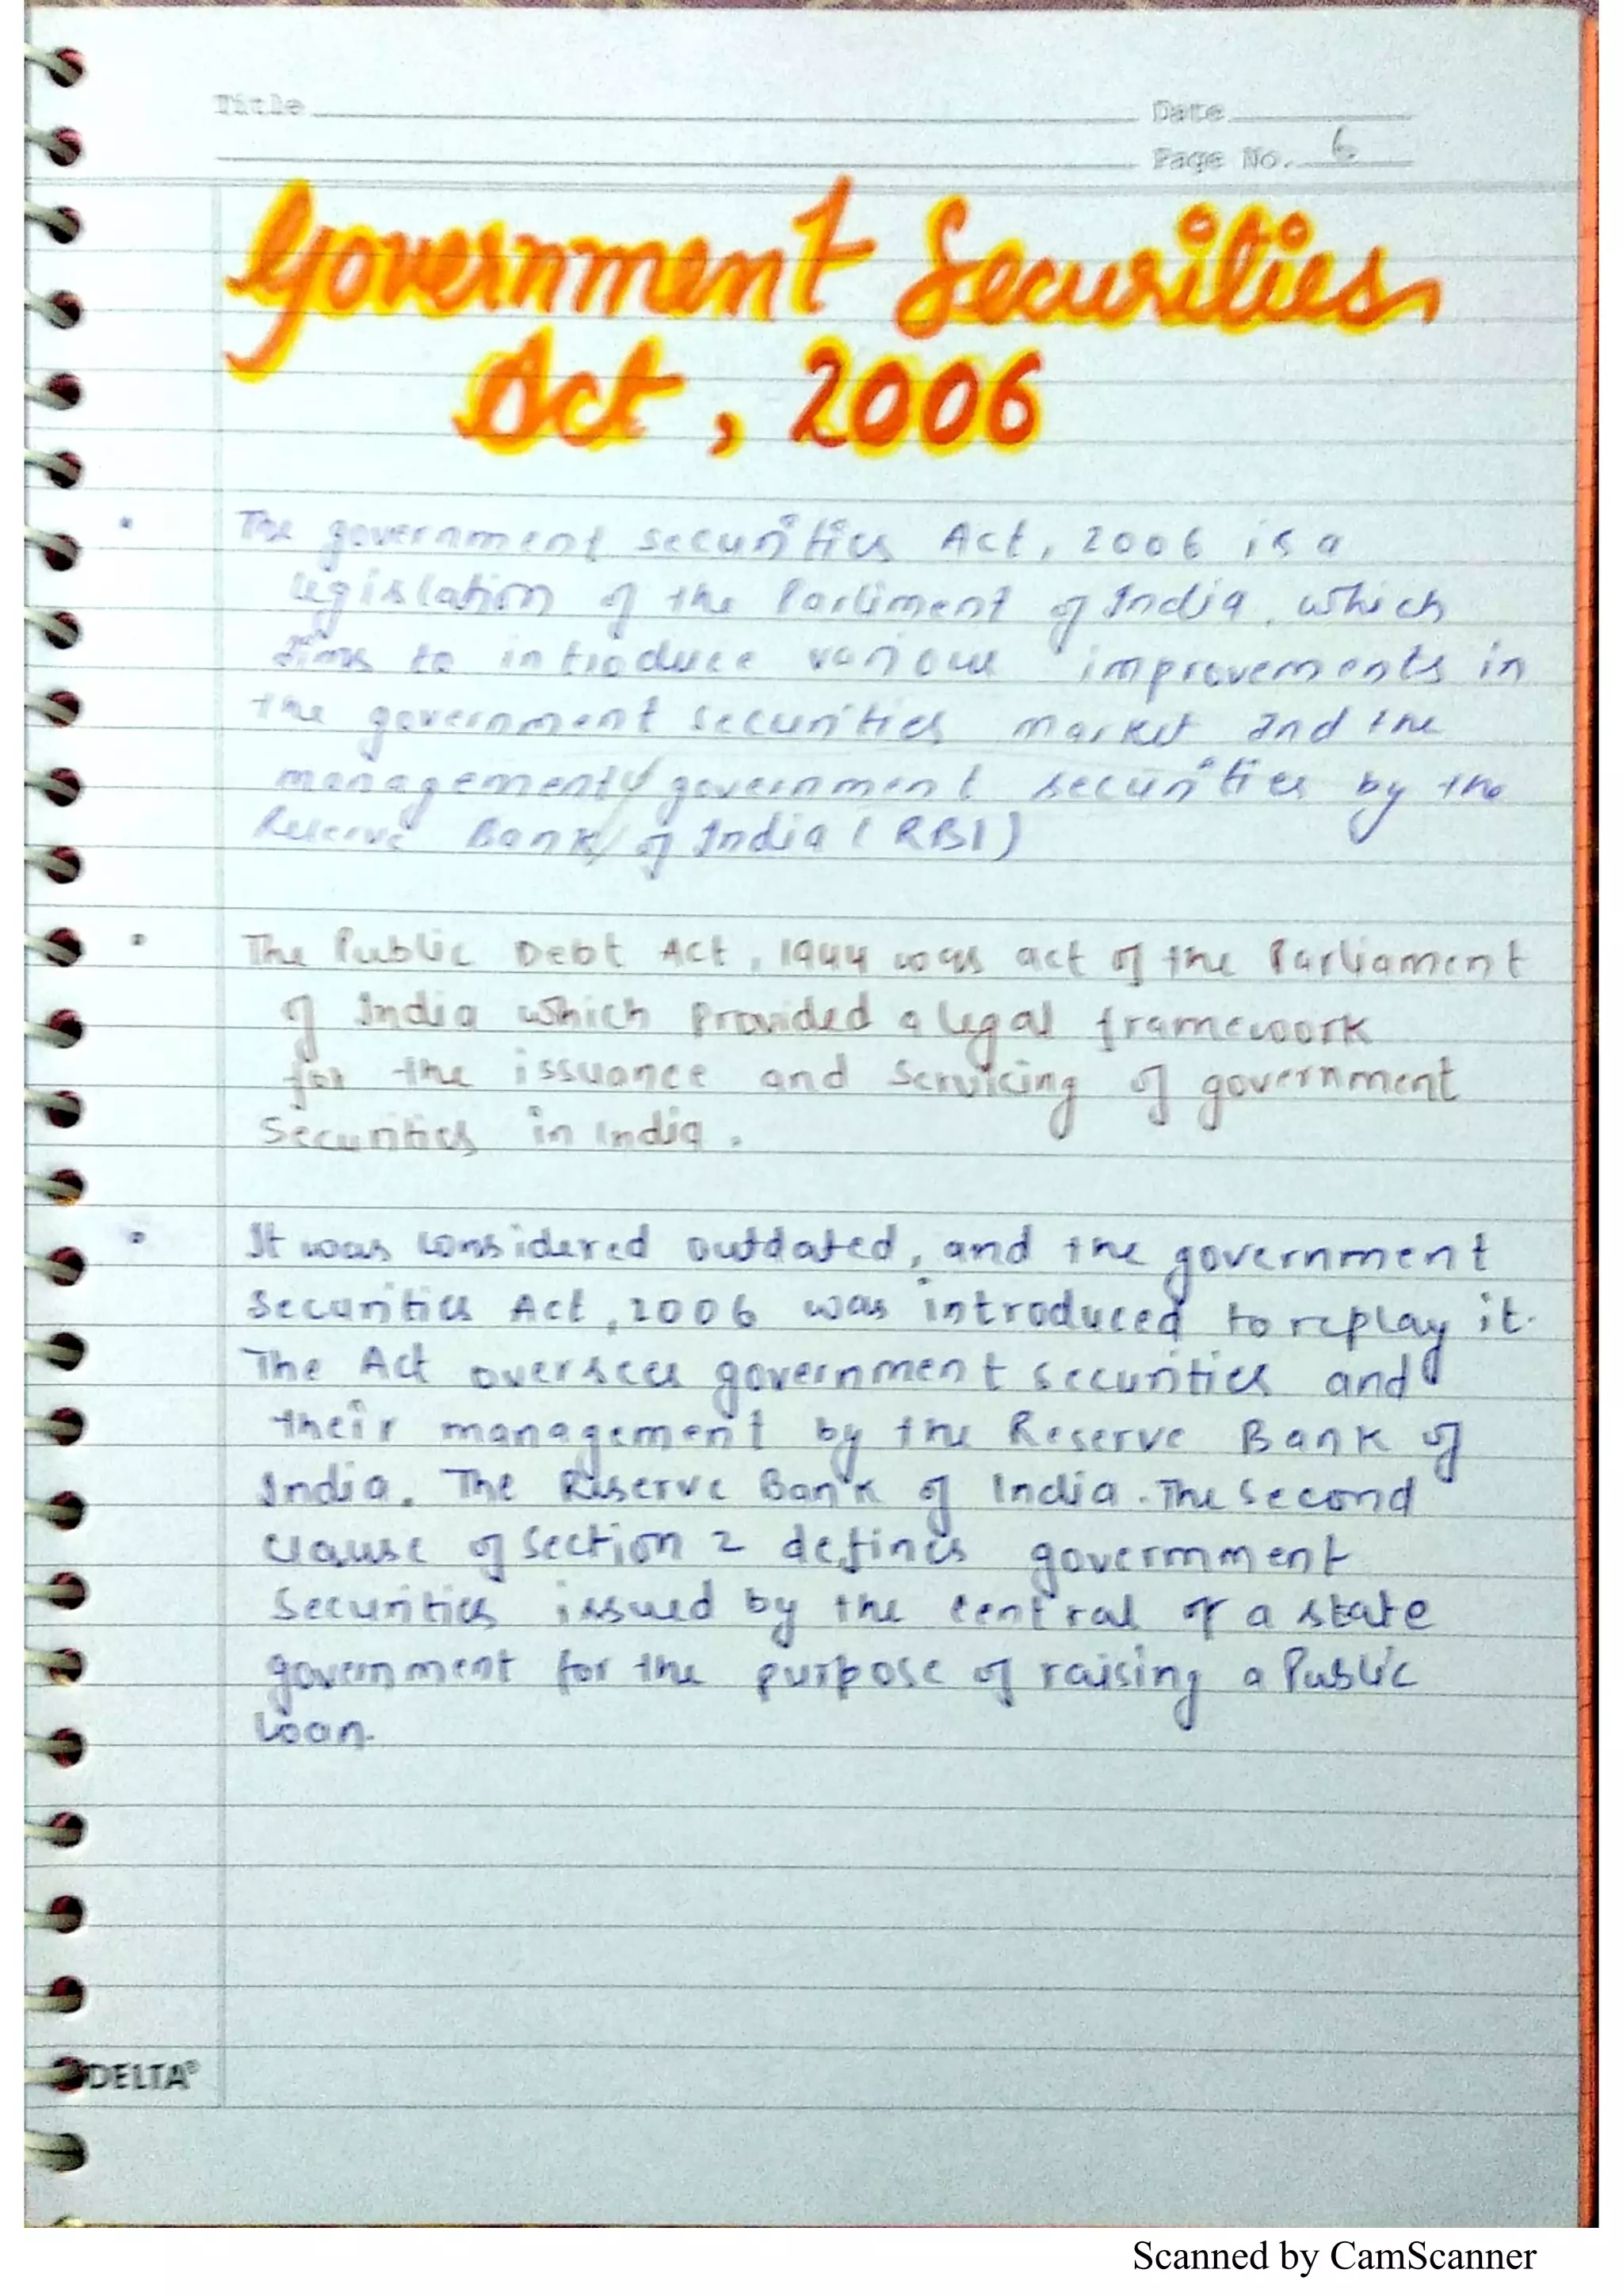 Title Date
Page No. 6
Government Securities
Act, 2006
• The government securities Act, 2006 is a
legislation of the Parliment of India, which
aims to introduce various improvements in
the government securities market and the
management of government securities by the
Reserve Bank of India (RBI)
• The Public Debt Act, 1944 was act of the Parliament
of India which Provided a legal framework
for the issuance and Servicing of government
Securities in India.
• It was considered outdated, and the government
Securities Act, 2006 was introduced to replay it.
The Act oversees government securities and
their management by the Reserve Bank of
India. The Reserve Bank of India. The Second
clause of Section 2 defines govermment
Securities issued by the central or a state
government for the purpose of raising a Public
Loan.
DELTA®
Scanned by CamScanner